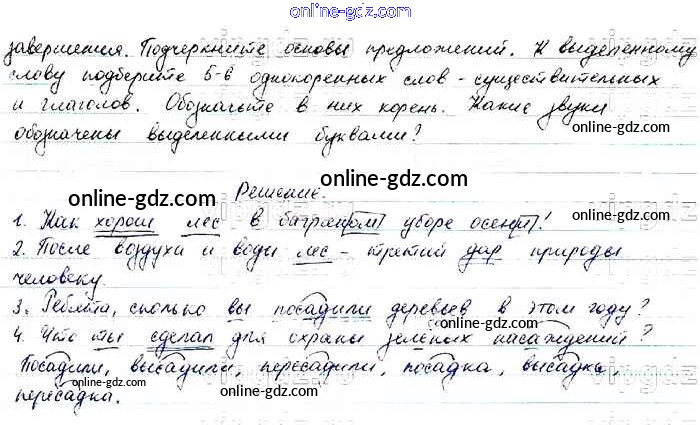 online-gdz.com
завершения. Подчеркните основы предложений. К выделенному
слову подберите 5-6 однокоренных слов - существительных
и глаголов. Обозначьте в них корень. Какие звуки
online-gdz.com
обозначены выделенными буквами?
online-gdz.com
online-gdz.com
Решение.
online-gdz.com
1. Как хорош лес в багряном уборе осени!
2. После воздуха и воды лес - третий дар природы
online-gdz.com
человеку.
3. Ребята, сколько вы посадили деревьев в этом году?
online-gdz.com
4. Что ты сделал для охраны зелёных насаждений?
online-gdz.com
Посадили, высадили, пересадили, посадка, высадка,
online-gdz.com
online-gdz.com
пересадка.